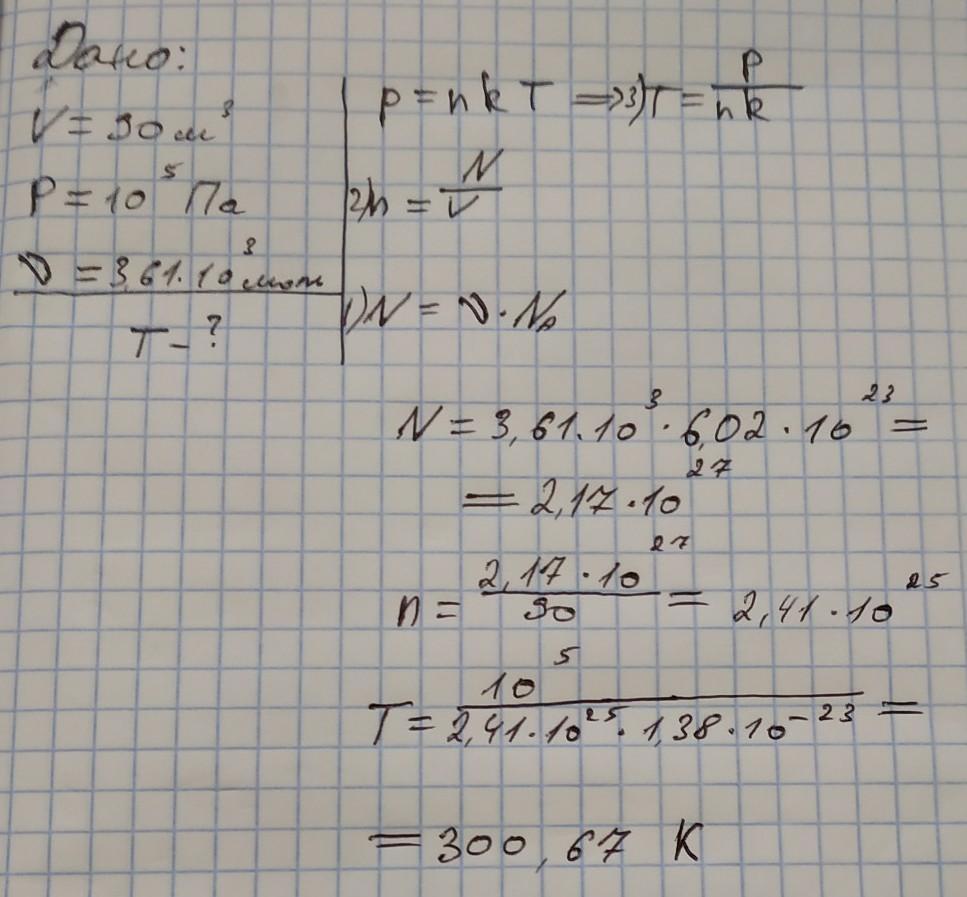 Дано:
V = 90 м³
P = 10⁵ Па
ν = 3,61·10³ моль
T - ?
p = n k T ⟹ 3) T = p/nk
2) n = N/V
1) N = ν · Nₐ
N = 3,61·10³ · 6,02 · 10²³ =
= 2,17 · 10²⁷
n = 2,17 · 10²⁷/90 = 2,41 · 10²⁵
T = 10⁵/2,41 · 10²⁵ · 1,38 · 10⁻²³ =
= 300,67 K